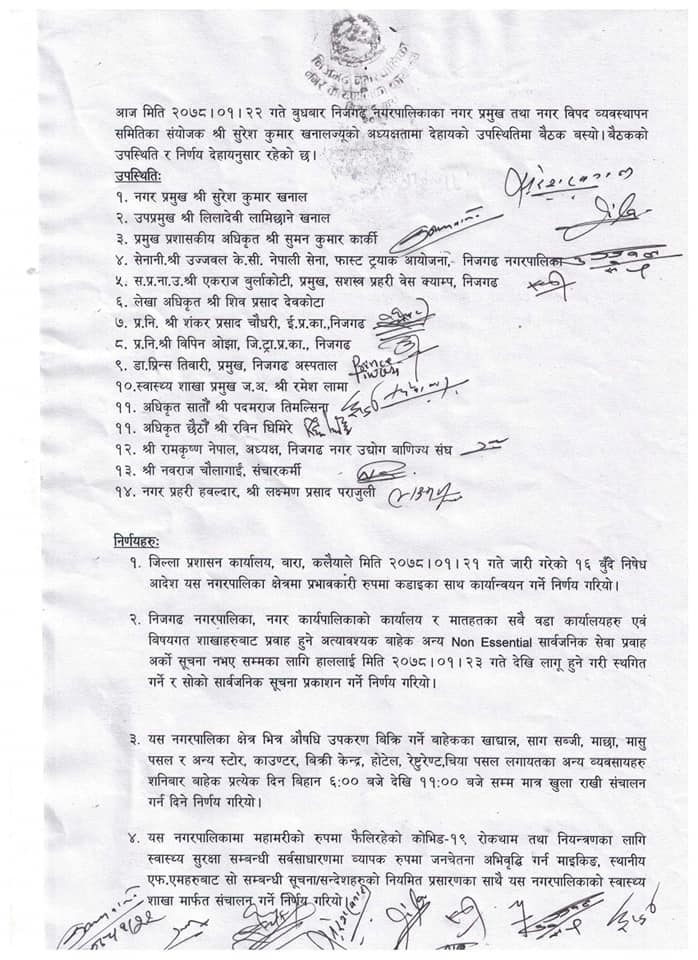 आज मिति २०७८।०१।२२ गते बुधबार निजगढ नगरपालिकाका नगर प्रमुख तथा नगर विपद व्यवस्थापन
समितिका संयोजक श्री सुरेश कुमार खनालज्यूको अध्यक्षतामा देहायको उपस्थितिमा बैठक बस्यो। बैठकको
उपस्थिति र निर्णय देहायनुसार रहेको छ।
उपस्थितिः
१. नगर प्रमुख श्री सुरेश कुमार खनाल
२. उपप्रमुख श्री लिलादेवी लामिछाने खनाल
३. प्रमुख प्रशासकीय अधिकृत श्री सुमन कुमार कार्की
४. सेनानी.श्री उज्जवल के.सी. नेपाली सेना, फास्ट ट्रयाक आयोजना,- निजगढ नगरपालिका
५. स.प्र.ना.उ.श्री एकराज बुर्लाकोटी, प्रमुख, सशस्त्र प्रहरी वेस क्याम्प, निजगढ
६. लेखा अधिकृत श्री शिव प्रसाद देवकोटा
७. प्र.नि. श्री शंकर प्रसाद चौधरी, ई.प्र.का.,निजगढ
८. प्र.नि.श्री विपिन ओझा, जि.ट्रा.प्र.का., निजगढ
९. डा.प्रिन्स तिवारी, प्रमुख, निजगढ अस्पताल
१०.स्वास्थ्य शाखा प्रमुख ज.अ. श्री रमेश लामा
११. अधिकृत सातौं श्री पदमराज तिमल्सिना
११. अधिकृत छैठौं श्री रविन घिमिरे
१२. श्री रामकृष्ण नेपाल, अध्यक्ष, निजगढ नगर उद्योग बाणिज्य संघ
१३. श्री नवराज चौलागाईं, संचारकर्मी
१४. नगर प्रहरी हवल्दार, श्री लक्ष्मण प्रसाद पराजुली
निर्णयहरुः
१. जिल्ला प्रशासन कार्यालय, बारा, कलैयाले मिति २०७८।०१।२१ गते जारी गरेको १६ बुँदे निषेध
आदेश यस नगरपालिका क्षेत्रमा प्रभावकारी रुपमा कडाइका साथ कार्यान्वयन गर्ने निर्णय गरियो।
२. निजगढ नगरपालिका, नगर कार्यपालिकाको कार्यालय र मातहतका सबै वडा कार्यालयहरु एवं
विषयगत शाखाहरुबाट प्रवाह हुने अत्यावश्यक बाहेक अन्य Non Essential सार्वजनिक सेवा प्रवाह
अर्को सूचना नभए सम्मका लागि हाललाई मिति २०७८।०१।२३ गते देखि लागू हुने गरी स्थगित
गर्ने र सोको सार्वजनिक सूचना प्रकाशन गर्ने निर्णय गरियो।
३. यस नगरपालिका क्षेत्र भित्र औषधि उपकरण बिक्रि गर्ने बाहेकका खाद्यान्न, साग सब्जी, माछा, मासु
पसल र अन्य स्टोर, काउण्टर, बिक्री केन्द्र, होटेल, रेष्टुरेण्ट,चिया पसल लगायतका अन्य व्यवसायहरु
शनिबार बाहेक प्रत्येक दिन बिहान ६:०० बजे देखि ११:०० बजे सम्म मात्र खुला राखी संचालन
गर्न दिने निर्णय गरियो।
४. यस नगरपालिकामा महामारीको रुपमा फैलिरहेको कोभिड-१९ रोकथाम तथा नियन्त्रणका लागि
स्वास्थ्य सुरक्षा सम्बन्धी सर्वसाधारणमा व्यापक रुपमा जनचेतना अभिवृद्धि गर्न माइकिङ, स्थानीय
एफ.एमहरुबाट सो सम्बन्धी सूचना/सन्देशहरुको नियमित प्रसारणका साथै यस नगरपालिकाको स्वास्थ्य
शाखा मार्फत संचालन गर्ने निर्णय गरियो।